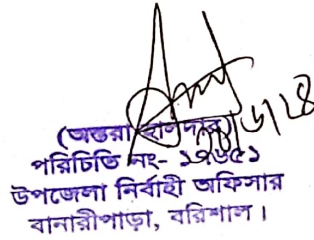 (অন্তরা হালদার)
পরিচিতি নং- ১৭৬৫১
উপজেলা নির্বাহী অফিসার
বানারীপাড়া, বরিশাল।